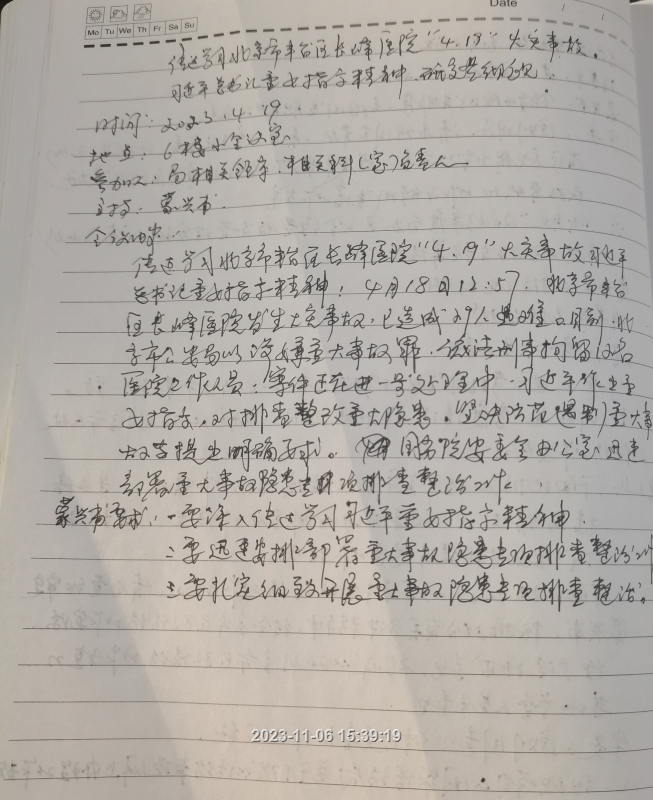 Date
Mo Tu We Th Fr Sa Su
传达学习北京市丰台区长峰医院"4.18"火灾事故。
习近平总书记重要指示精神,研究贯彻意见.
时间:2023.4.19.
地点:6楼小会议室
参加人:局相关领导、相关科(室)负责人
主持:蒙兴书.
会议内容
传达学习北京市丰台区长峰医院"4.19"火灾事故习近平
总书记重要指示精神:4月18日12:57.北京市丰台
区长峰医院发生火灾事故,已造成29人遇难.目前,北
京市公安局以涉嫌重大事故罪,依法刑事拘留12名
医院工作人员.事件正在进一步处理中.习近平作出重
要指示,对排查整改重大隐患、坚决防范遏制重大事
故等提出明确要求。国务院安委会办公室迅速
部署重大事故隐患专项排查整治工作.
蒙兴书要求:一要深入传达学习习近平重要指示精神.
二要迅速安排部署重大事故隐患专项排查整治工作
三要扎实细致开展重大事故隐患专项排查整治。
2023-11-06 15:39:19